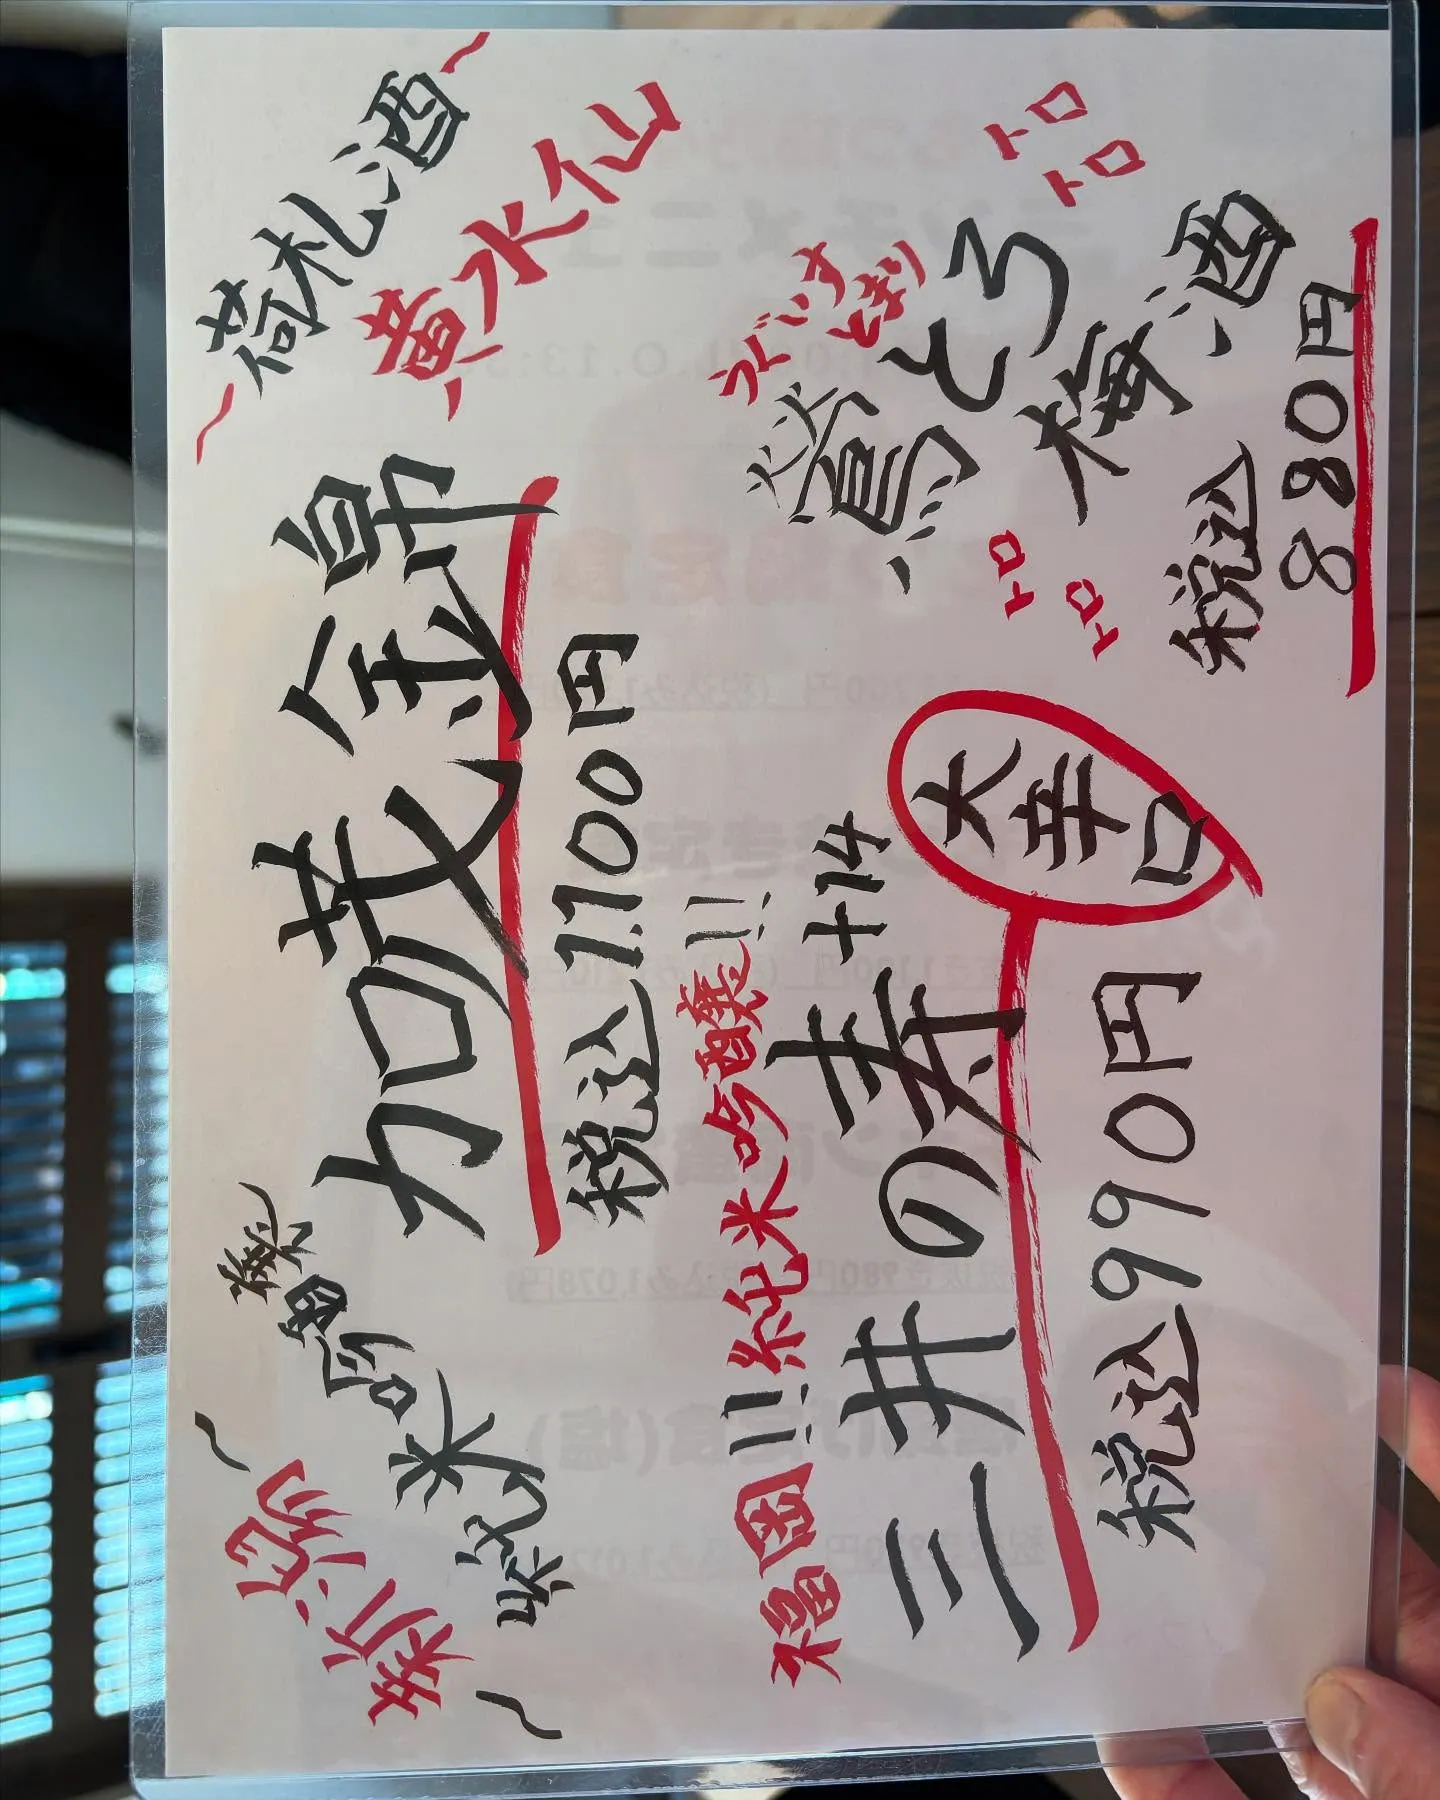 〜新潟〜
純米吟醸
加茂錦
税込1.100円
〜荷札酒〜
黄水仙
福岡!!純米吟醸!!
三井の寿+14
大辛口
税込990円
うぐいす
とまり
鶯とろ
梅酒
トロ
トロ
トロ
トロ
税込
880円